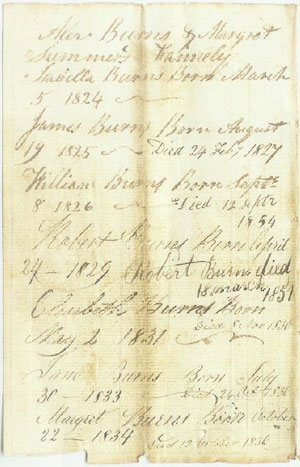 Alexr Burns & Margrot
Summers Fannely
Isabella Burns Born March
5 1824
James Burns Born August
19 1825 Died 24 Feby 1827
William Burns Born Septr
8 1826 Died 12 Septr
1854
Robert Burns Born April
24 — 1829 Robert Burns died
18 march 1851
Elisabeth Burns Born
May 2 1831 Died 8 Nov
Jane Burns Born July
30 — 1833 Died 24
Margrot Burns Born October
22 — 1834 Died 1836